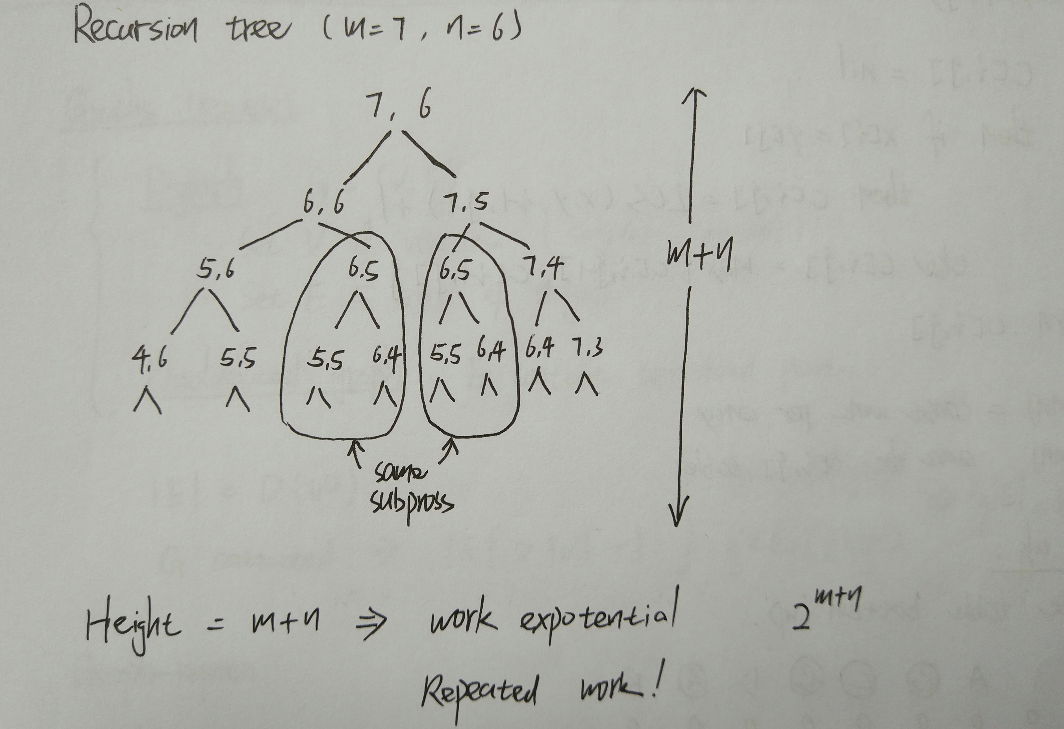 Recursion tree (m=7, n=6)
7, 6
6,6 7,5
5,6 6,5 6,5 7,4
m+n
4,6 5,5 5,5 6,4 5,5 6,4 6,4 7,3
same
subpross
Height = m+n ⇒ work expotential 2^{m+n}
Repeated work!